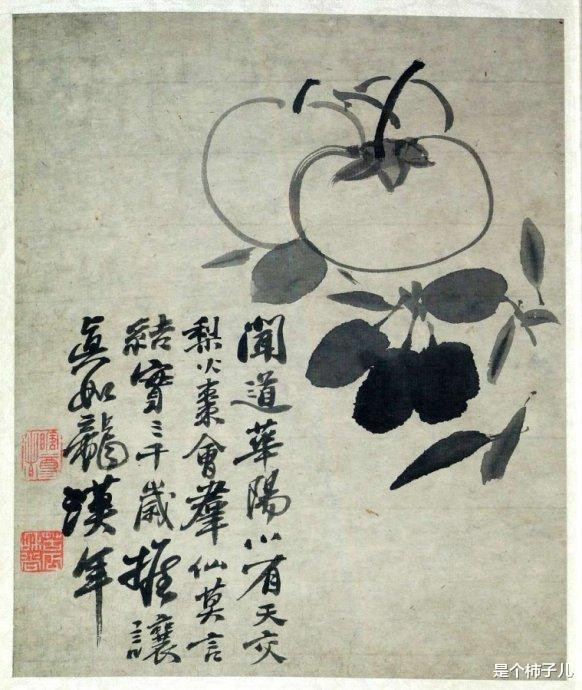 聞道華陽小有天交
梨火棗會羣仙莫言
結實三千歲推讓
眞如龍漢年
是个柿子儿